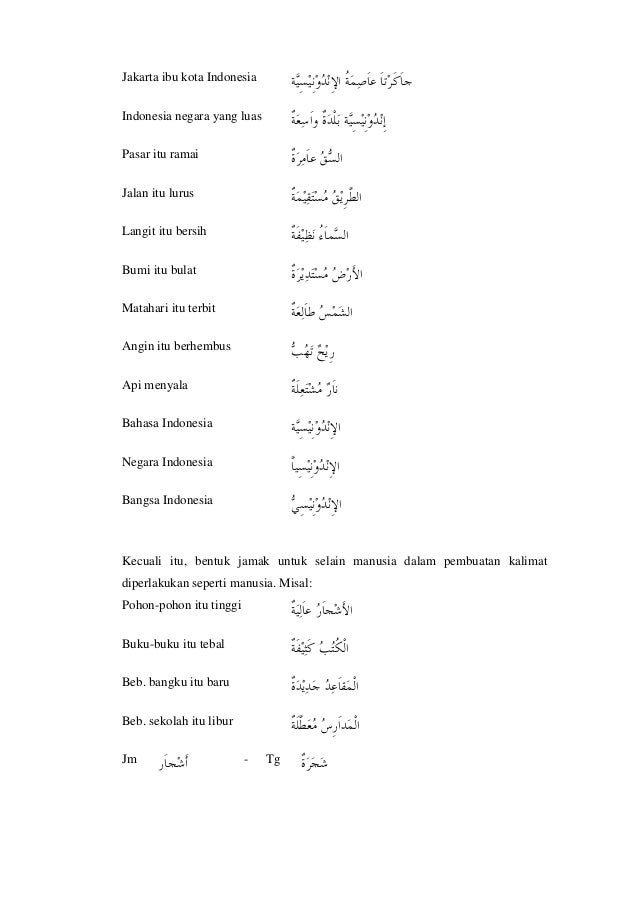 Jakarta ibu kota Indonesia جاَكَرْتاَ عاَصِمَةُ الإِنْدُوْنِيْسِيَّة
Indonesia negara yang luas إِنْدُوْنِيْسِيَّة بَلْدَةٌ واَسِعَةٌ
Pasar itu ramai السُّقُ عاَمِرَةٌ
Jalan itu lurus الطَّرِيْقُ مُسْتَقِيْمَةٌ
Langit itu bersih السَّماَءُ نَظِيْفَةٌ
Bumi itu bulat الأَرْضُ مُسْتَدِيْرَةٌ
Matahari itu terbit الشَمْسُ طاَلِعَةٌ
Angin itu berhembus رِيْحٌ تَهُبُّ
Api menyala ناَرٌ مُشْتَعِلَةٌ
Bahasa Indonesia الإِنْدُوْنِيْسِيَّة
Negara Indonesia الإِنْدُوْنِيْسِياً
Bangsa Indonesia الإِنْدُوْنِيْسِيُّ
Kecuali itu, bentuk jamak untuk selain manusia dalam pembuatan kalimat
diperlakukan seperti manusia. Misal:
Pohon-pohon itu tinggi الأَشْجاَرُ عاَلِيَةٌ
Buku-buku itu tebal الْكُتُبُ كَثِيْفَةٌ
Beb. bangku itu baru الْمَقاَعِدُ جَدِيْدَةٌ
Beb. sekolah itu libur الْمَداَرِسُ مُعَطَّلَةٌ
Jm أَشْجاَر - Tg شَجَرَةٌ